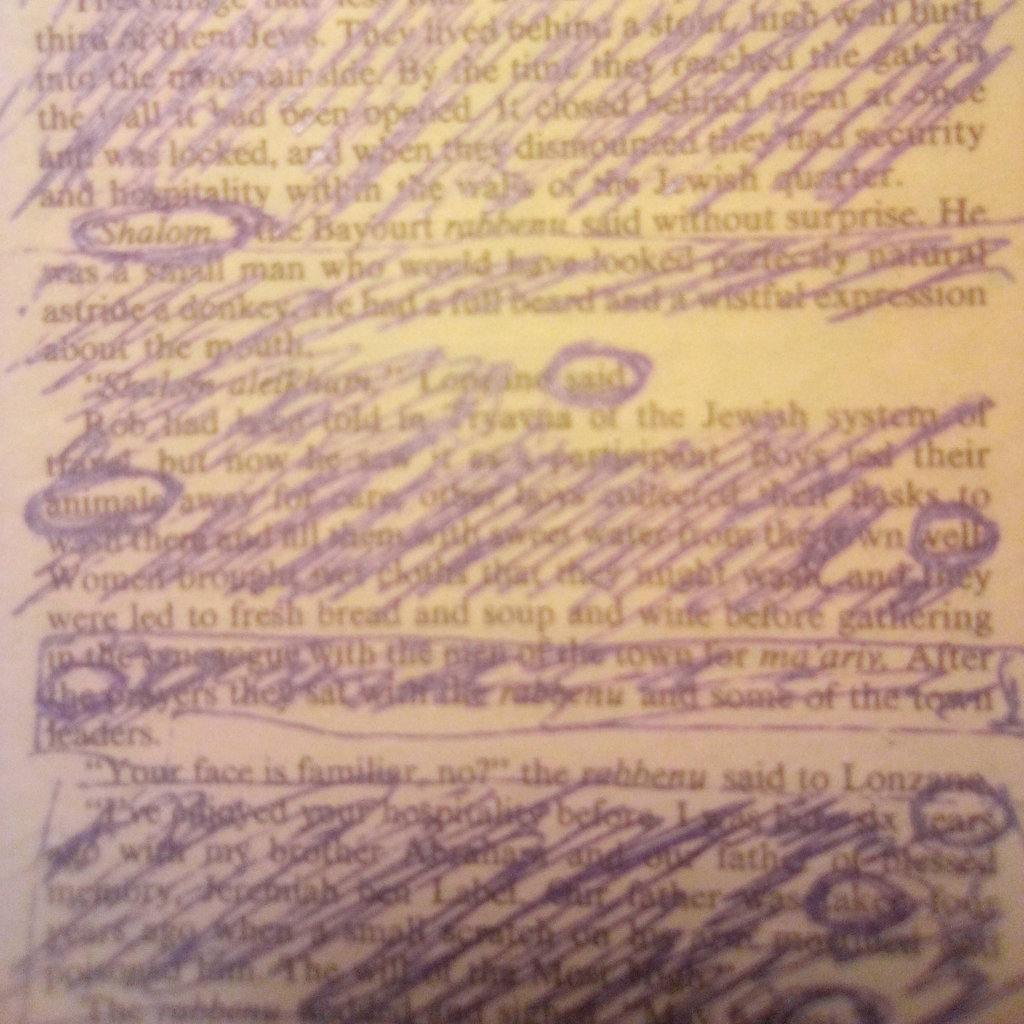 third of them Jews. They lived behind a stout, high wall built
into the mountainside. By the time they reached the gate in
the wall it had been opened. It closed behind them at once
and was locked, and when they dismounted they had security
and hospitality within the walls of the Jewish quarter.
"Shalom," the Bayourt rabbenu said without surprise. He
was a small man who would have looked perfectly natural
astride a donkey. He had a full beard and a wistful expression
about the mouth.
"Shalom aleikhum," Lonzano said.
Rob had been told in Tryavna of the Jewish system of
travel, but now he saw it as a participant. Boys led their
animals away for care, other boys collected their flasks to
wash them and fill them with sweet water from the town well.
Women brought wet cloths that they might wash, and they
were led to fresh bread and soup and wine before gathering
in the synagogue with the men of the town for ma'ariv. After
the prayers they sat with the rabbenu and some of the town
leaders.
"Your face is familiar, no?" the rabbenu said to Lonzano.
"I've enjoyed your hospitality before. I was here six years
ago with my brother Abraham and our father of blessed
memory, Jeremiah ben Label. Our father was taken four
years ago when a small scratch on his
poisoned him. The will of the Most High."
The rabbenu